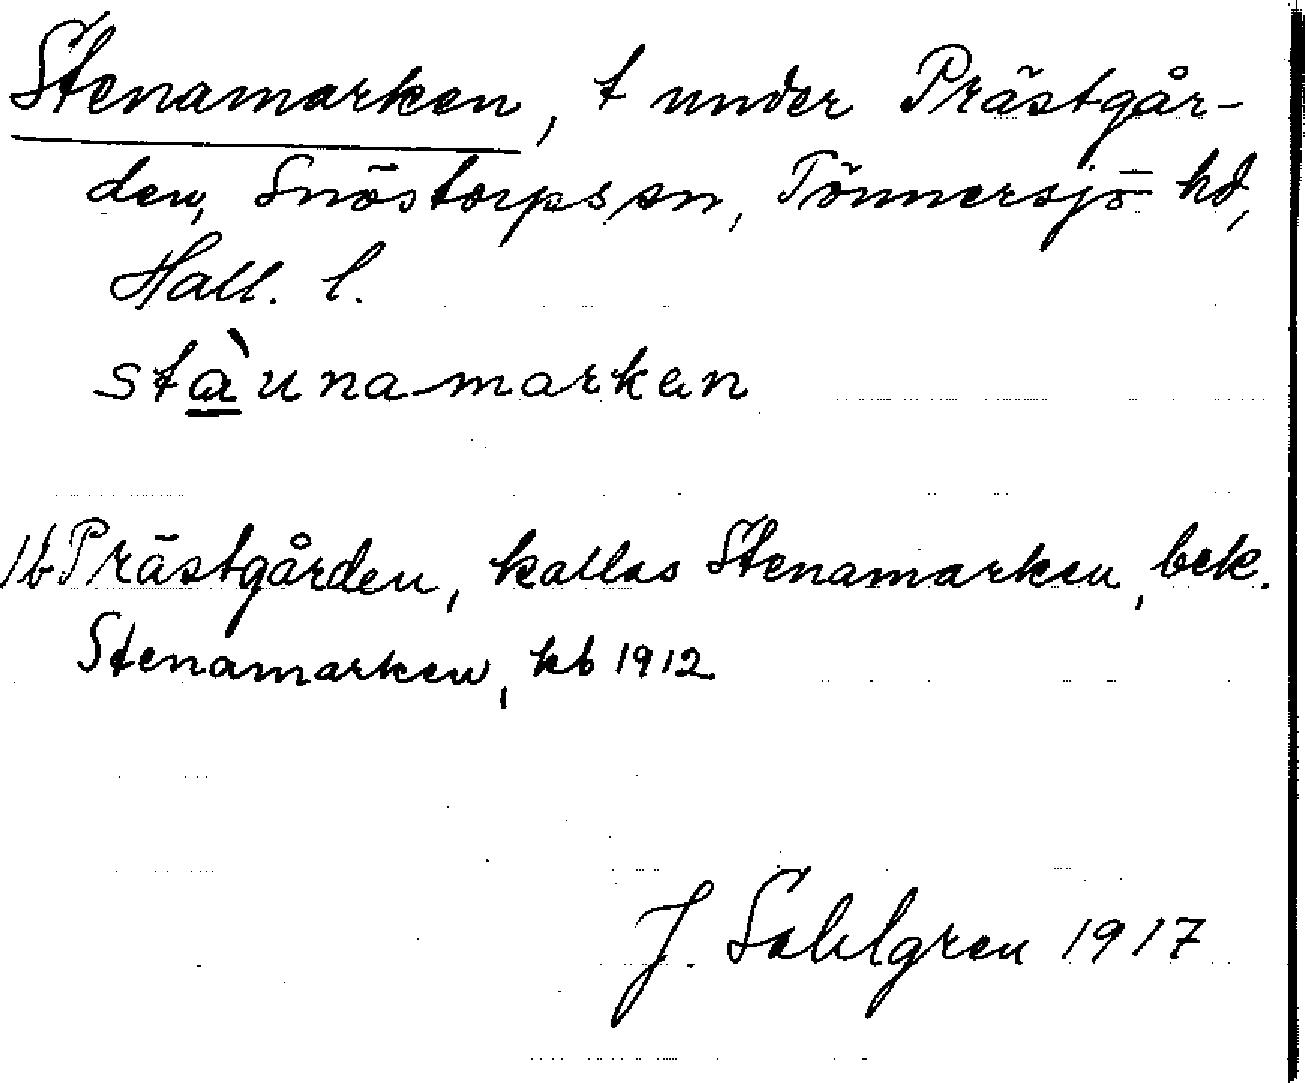 Stenamarken, t under Prästgår-
den, Snöstorps sn, Tönnersjö hd,
Hall. l.
stàunamarkan
1b Prästgården, kallas Stenamarken, bek.
Stenamarken, kb 1912.
J. Sahlgren 1917